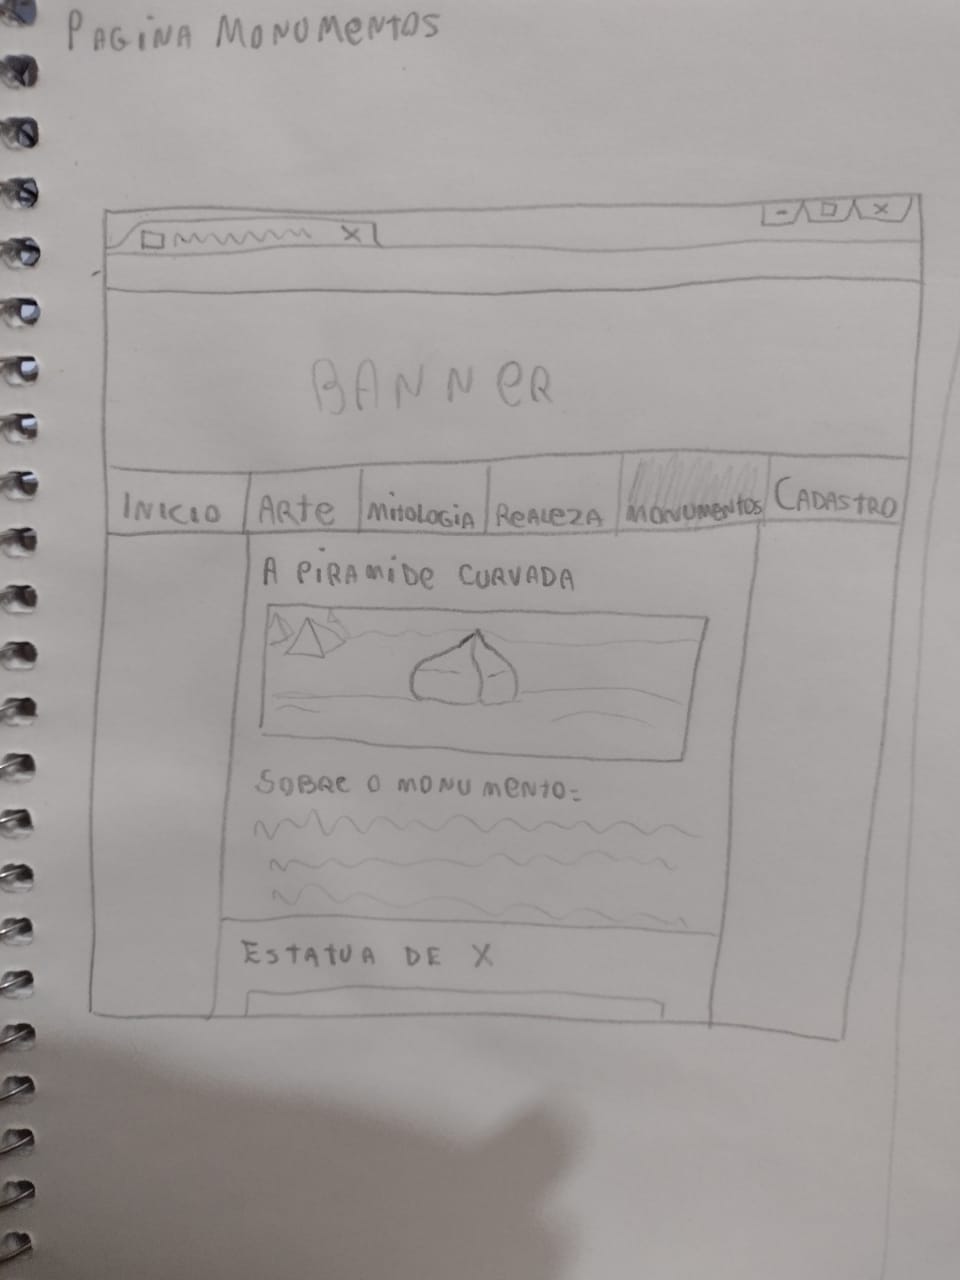 PAGINA MONUMENTOS
X
- □ X
BANNER
INICIO ARTE MITOLOGIA REALEZA MONUMENTOS CADASTRO
A PIRAMIDE CURVADA
SOBRE O MONUMENTO:
ESTATUA DE X